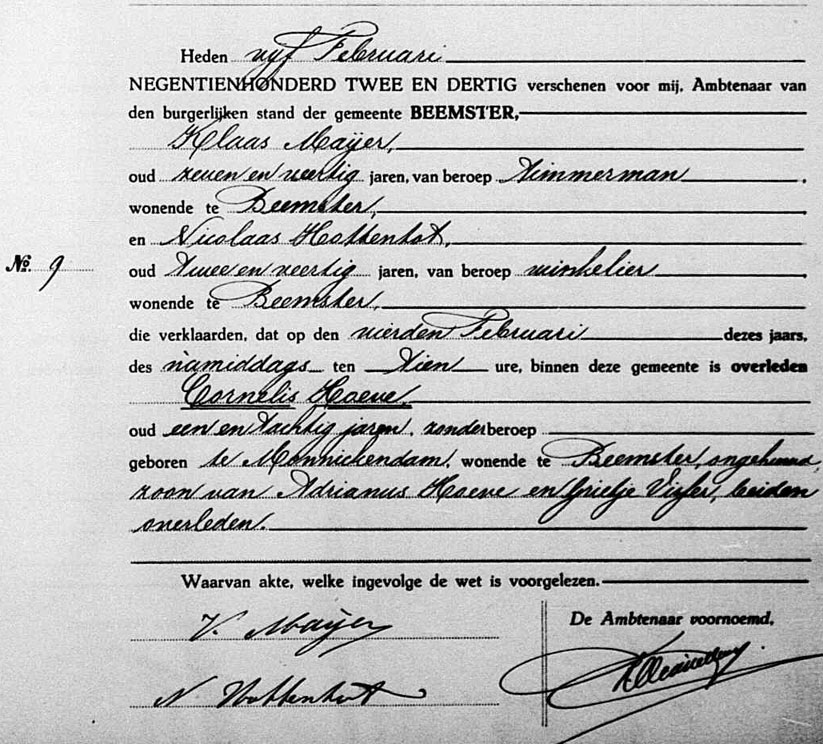 Heden vijf Februari
NEGENTIENHONDERD TWEE EN DERTIG verschenen voor mij, Ambtenaar van
den burgerlijken stand der gemeente BEEMSTER,
Klaas Maÿer,
oud zeven en veertig jaren, van beroep timmerman,
wonende te Beemster,
en Nicolaas Hottentot,
No. 9
oud twee en veertig jaren, van beroep winkelier
wonende te Beemster,
die verklaarden, dat op den vierden Februari dezes jaars,
des namiddags ten tien ure, binnen deze gemeente is overleden
Cornelis Hoeve,
oud een en tachtig jaren, zonder beroep
geboren te Monnickendam, wonende te Beemster, ongehuwd,
zoon van Adrianus Hoeve en Grietje Visser, beiden
overleden.
Waarvan akte, welke ingevolge de wet is voorgelezen.
K. Maÿer
De Ambtenaar voornoemd,
N Hottentot